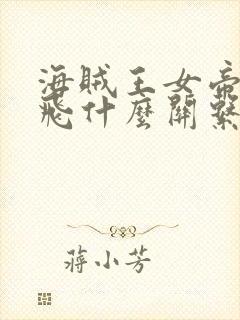 海賊王女帝
飛什麼關繫
蔣小芳